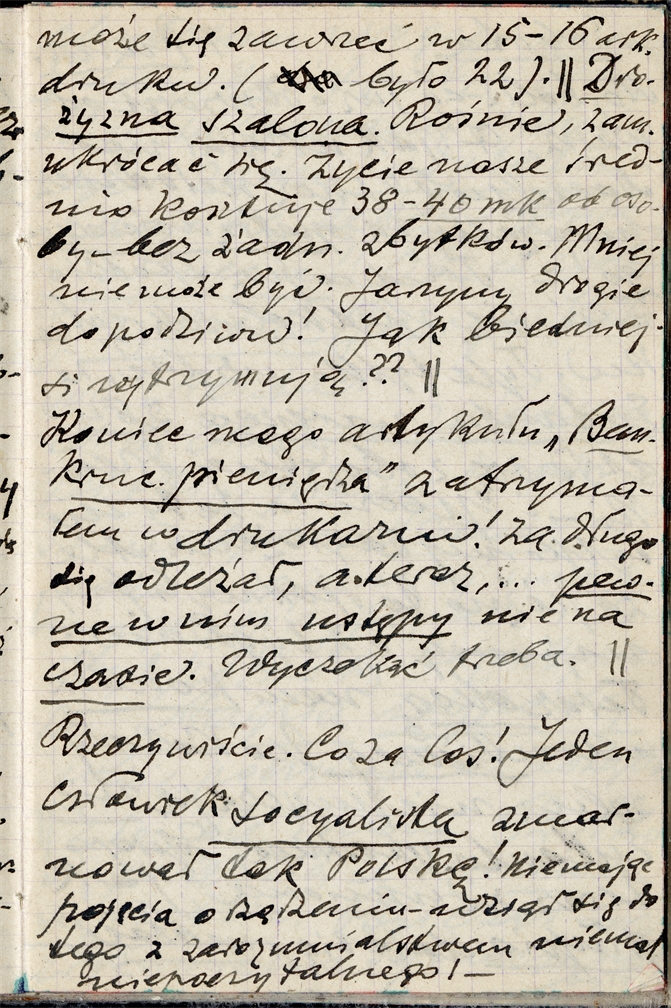 może się zawrzeć w 15-16 ark.
druku. ( było 22). || Dro-
żyzna szalona. Rośnie, zam.
ukrócać się. Życie nasze śred-
nio kosztuje 38-40 mk od oso-
by - bez żadn. zbytków. Mniej
nie może być. Jarzyny drogie
do podziwu! Jak biedniej-
si wytrzymują?? ||
Koniec mego artykułu „Ban-
kruc. pieniądza" zatrzyma-
łem w drukarni! Za długo
się odleżał, a teraz,... pew-
ne w nim ustępy nie na
czasie. Wyczekać trzeba. ||
Rzeczywiście. Co za los! Jeden
człowiek socyalista zmar-
nował tak Polskę! Nie mając
pojęcia o rządzeniu - wziął się do
tego z zarozumialstwem niemal
niepoczytalnego! -